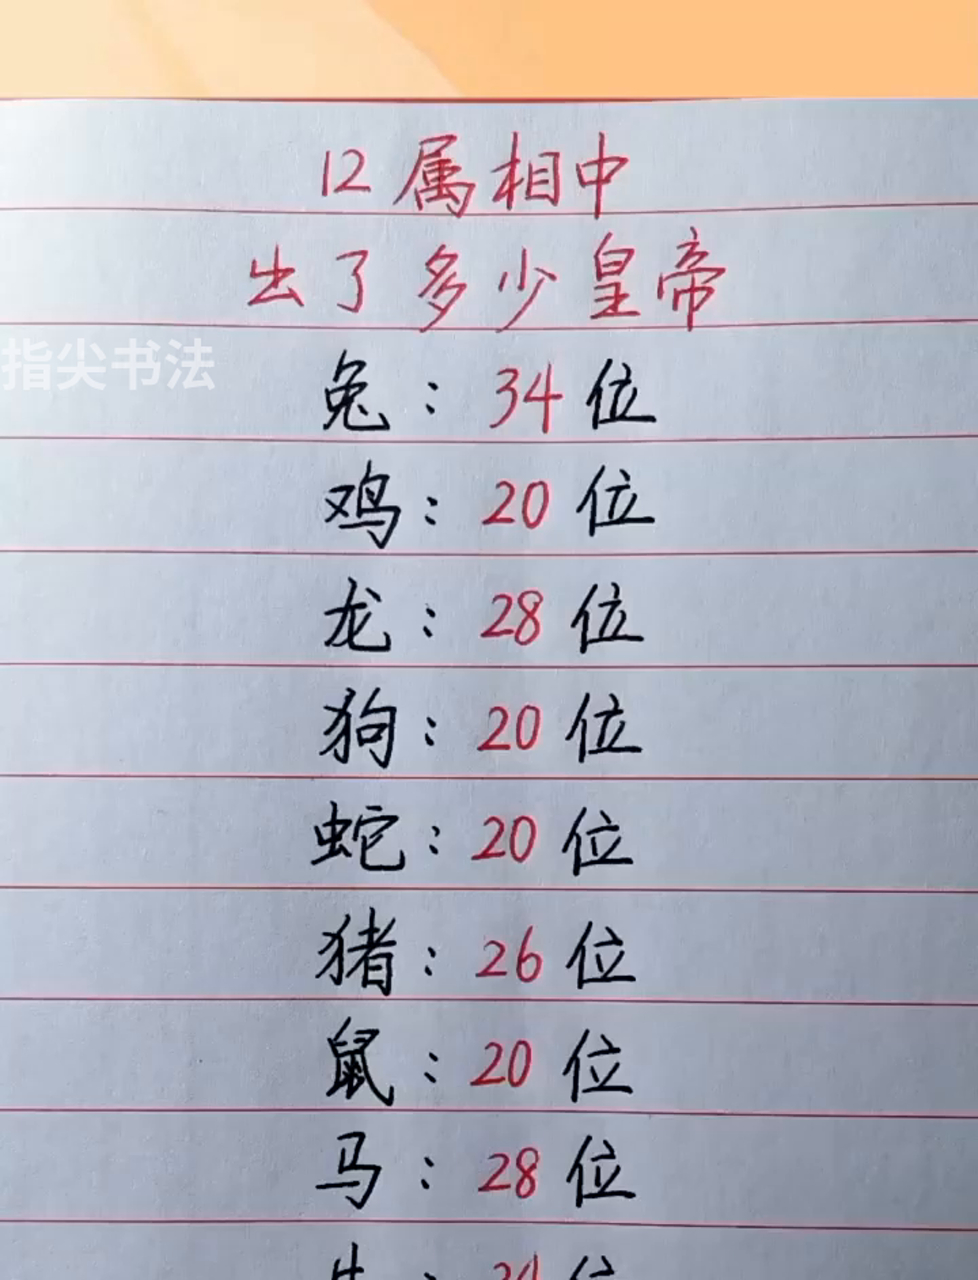 12属相中
出了多少皇帝
指尖书法
兔：34位
鸡：20位
龙：28位
狗：20位
蛇：20位
猪：26位
鼠：20位
马：28位